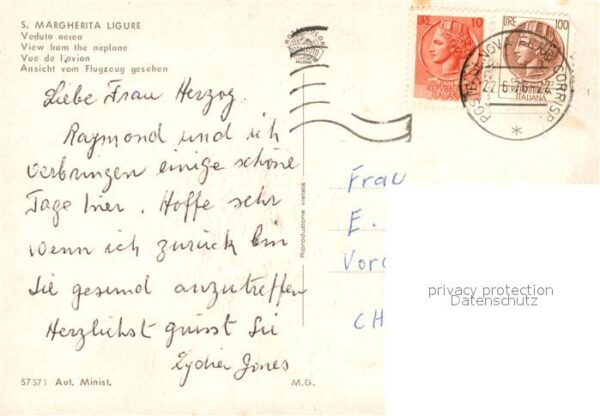 S. MARGHERITA LIGURE
Veduta aerea
View from the airplane
Vue de l'avion
Ansicht vom Flugzeug gesehen
Liebe Frau Herzog.
Raymond und ich
verbringen einige schöne
Tage hier. Hoffe sehr
wenn ich zurück bin
Sie gesund anzutreffen
Herzlichst grüsst Sie
Lydia Jones
57571 Aut. Minist.
M.G.
Riproduzione vietata
LIRE 10
REPUBBLICA
ITALIANA
LIRE 100
ITALIANA
GENOVA
CORRISP.
22.6.76-22
Frau
E.
CH
privacy protection
Datenschutz